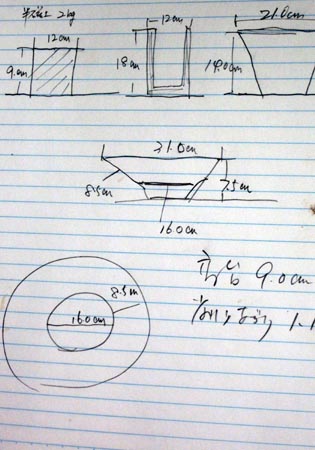 2kg
12cm
9.0cm
12cm
18cm
21.0cm
19.0cm
31.0cm
8.5cm
7.5cm
16.0cm
8.5cm
16.0cm
9.0cm
1.1